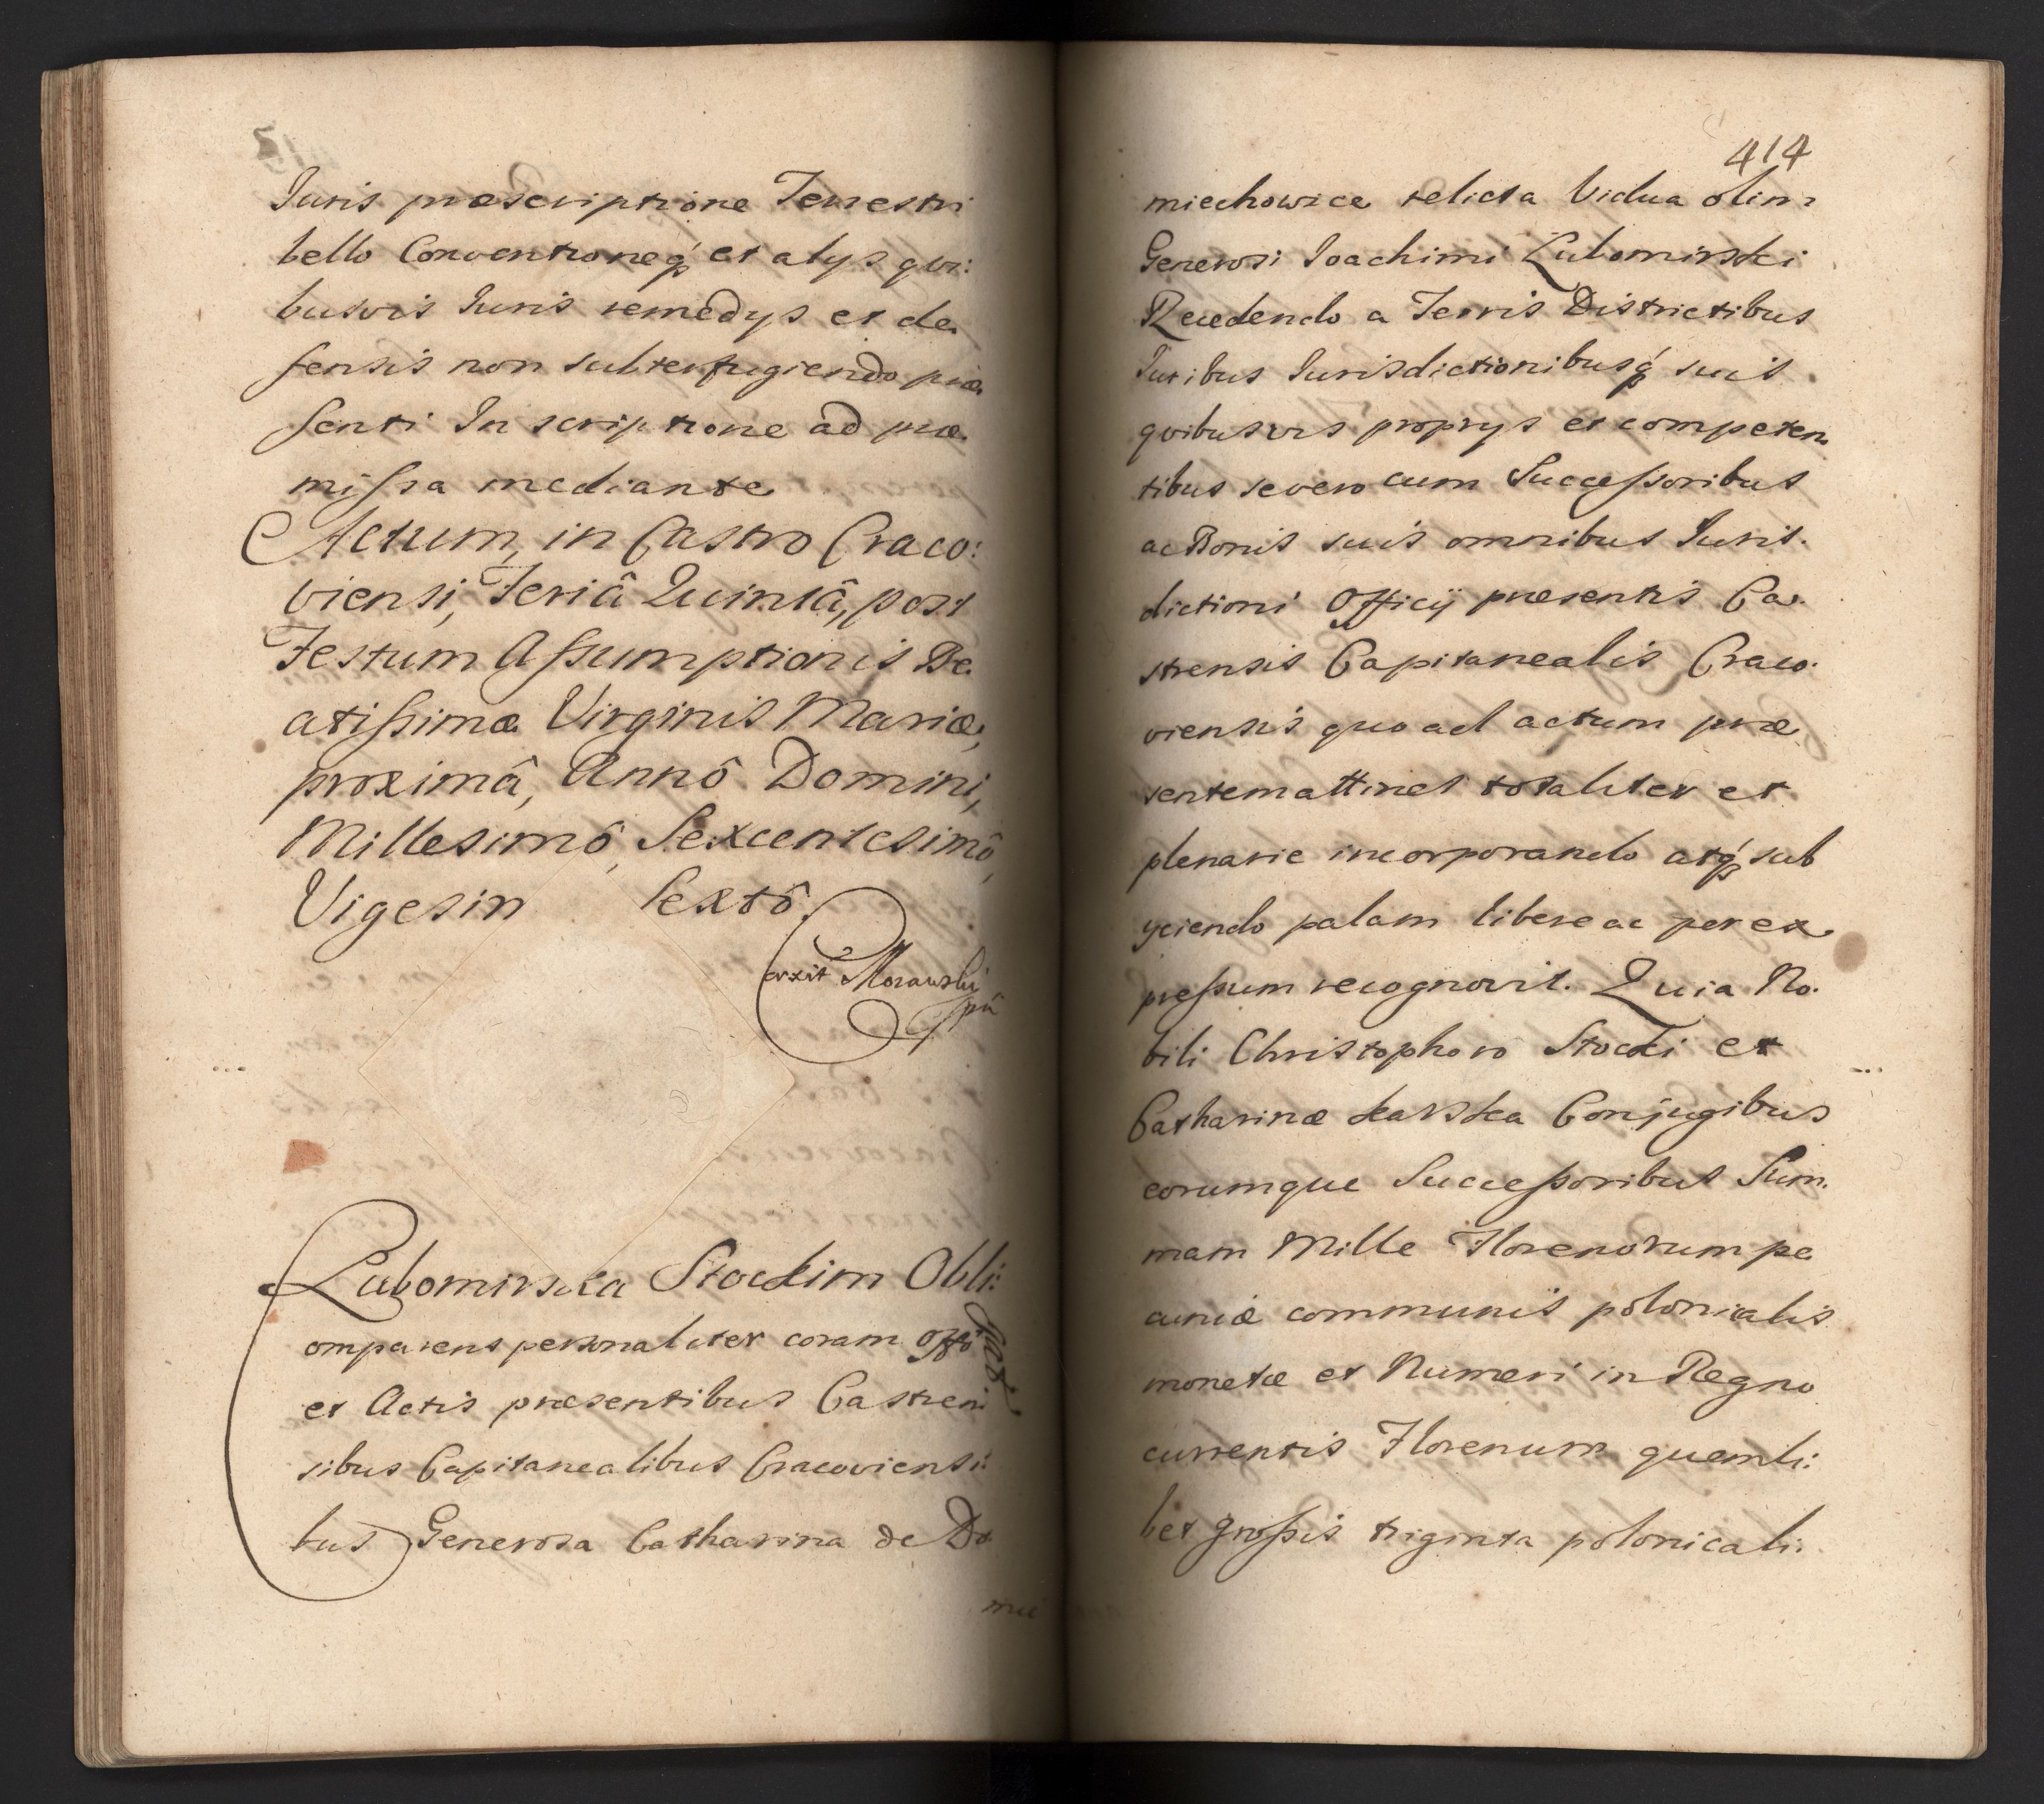 Juris præscriptione Terrestri
bello Conventioneq́ et alys qui:
busvis Juris remedys et de
fensis non subterfugiendo præ
senti Inscriptione ad præ
missa mediante
Actum, in Castro Craco:
viensi, Feriâ Quintâ, post
Festum Assumptionis Be
atissimæ Virginis Mariæ,
proximâ, Annô Domini,
Millesimô, Sexcentesimô,
Vigesim Sextô.
Morawski
Lubomirska Stockim Obli:
gat.
omparens personaliter coram Offō
et Actis præsentibus Castren
sibus Capitanealibus Cracoviensi:
bus Generosa Catharina de Do
mie
414
miechowice relicta Vidua olim
Generosi Joachimi Lubomirski
Recedendo a Terris Districtibus
Juribus Jurisdictionibusq́ suis
quibusvis proprys et competen
tibus se vero cum Successoribus
ac Bonis suis omnibus Juris.
dictioni Officij præsentis Ca.
strensis Capitanealis Craco.
viensis quo ad actum præ
sentem attinet totaliter et
plenarie incorporando atq́ sub
yciendo palam libere ac per ex
pressum recognovit. Quia No.
bili Christophoro Stocki et
Catharinæ Conjugibus
eorumque Successoribus Sum.
mam Mille Florenorum pe
cuniæ communis polonicalis
monetæ et Numeri in Regno
currentis Florenum quemli:
bet grossis triginta polonicali: